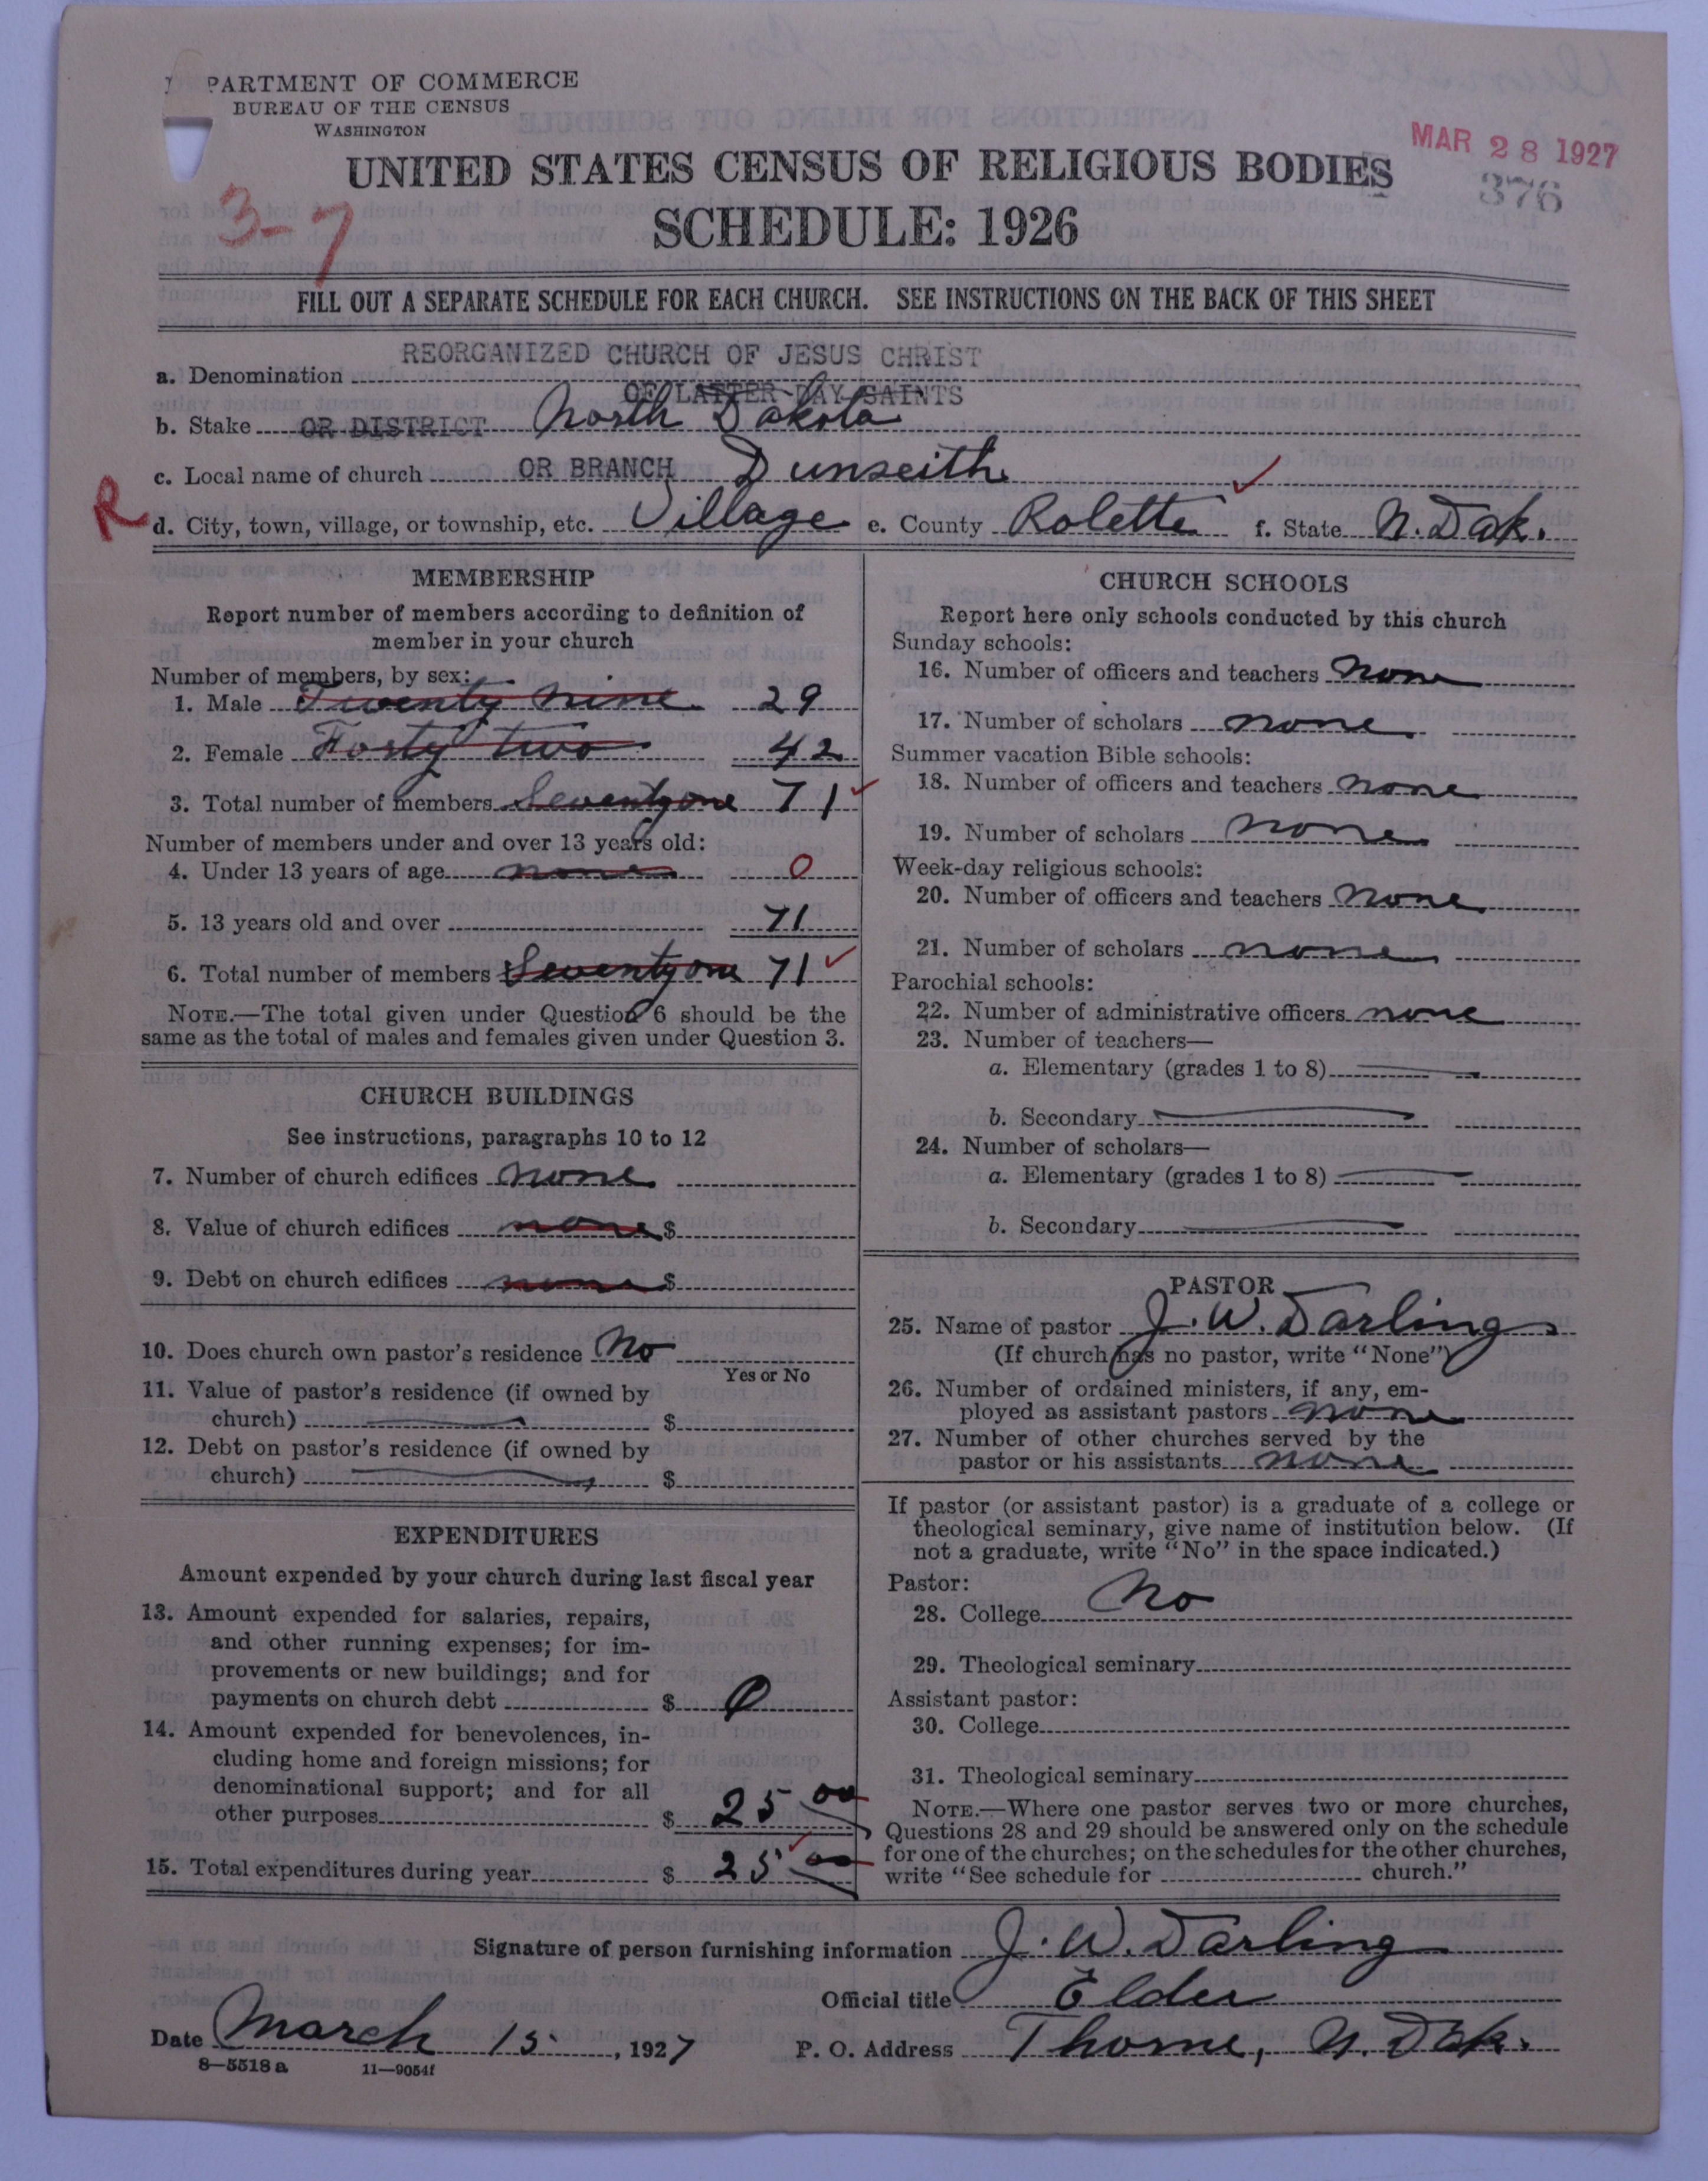 DEPARTMENT OF COMMERCE
BUREAU OF THE CENSUS
WASHINGTON
UNITED STATES CENSUS OF RELIGIOUS BODIES
MAR 28 1927
376
3-7
SCHEDULE: 1926
FILL OUT A SEPARATE SCHEDULE FOR EACH CHURCH. SEE INSTRUCTIONS ON THE BACK OF THIS SHEET
REORGANIZED CHURCH OF JESUS CHRIST
a. Denomination
OF LATTER DAY SAINTS
b. Stake OR DISTRICT North Dakota
c. Local name of church OR BRANCH Dunseith
R d. City, town, village, or township, etc. Village e. County Rolette f. State N. Dak.
MEMBERSHIP
Report number of members according to definition of
member in your church
Number of members, by sex:
1. Male Twenty nine 29
2. Female Forty two 42
3. Total number of members Seventy one 71
Number of members under and over 13 years old:
4. Under 13 years of age none 0
5. 13 years old and over 71
6. Total number of members Seventy one 71
NOTE.—The total given under Question 6 should be the
same as the total of males and females given under Question 3.
CHURCH BUILDINGS
See instructions, paragraphs 10 to 12
7. Number of church edifices none
8. Value of church edifices none $
9. Debt on church edifices none $
10. Does church own pastor's residence No
Yes or No
11. Value of pastor's residence (if owned by
church) $
12. Debt on pastor's residence (if owned by
church) $
EXPENDITURES
Amount expended by your church during last fiscal year
13. Amount expended for salaries, repairs,
and other running expenses; for im-
provements or new buildings; and for
payments on church debt $ 0
14. Amount expended for benevolences, in-
cluding home and foreign missions; for
denominational support; and for all
other purposes $ 25 00
15. Total expenditures during year $ 25 00
CHURCH SCHOOLS
Report here only schools conducted by this church
Sunday schools:
16. Number of officers and teachers none
17. Number of scholars none
Summer vacation Bible schools:
18. Number of officers and teachers none
19. Number of scholars none
Week-day religious schools:
20. Number of officers and teachers none
21. Number of scholars none
Parochial schools:
22. Number of administrative officers none
23. Number of teachers—
a. Elementary (grades 1 to 8)
b. Secondary
24. Number of scholars—
a. Elementary (grades 1 to 8)
b. Secondary
PASTOR
25. Name of pastor J. W. Darling
(If church has no pastor, write "None")
26. Number of ordained ministers, if any, em-
ployed as assistant pastors none
27. Number of other churches served by the
pastor or his assistants none
If pastor (or assistant pastor) is a graduate of a college or
theological seminary, give name of institution below. (If
not a graduate, write "No" in the space indicated.)
Pastor:
28. College No
29. Theological seminary
Assistant pastor:
30. College
31. Theological seminary
NOTE.—Where one pastor serves two or more churches,
Questions 28 and 29 should be answered only on the schedule
for one of the churches; on the schedules for the other churches,
write "See schedule for church."
Signature of person furnishing information J. W. Darling
Official title Elder
Date March 15, 1927 P. O. Address Thorne, N. Dak.
8—5518a 11—9054f